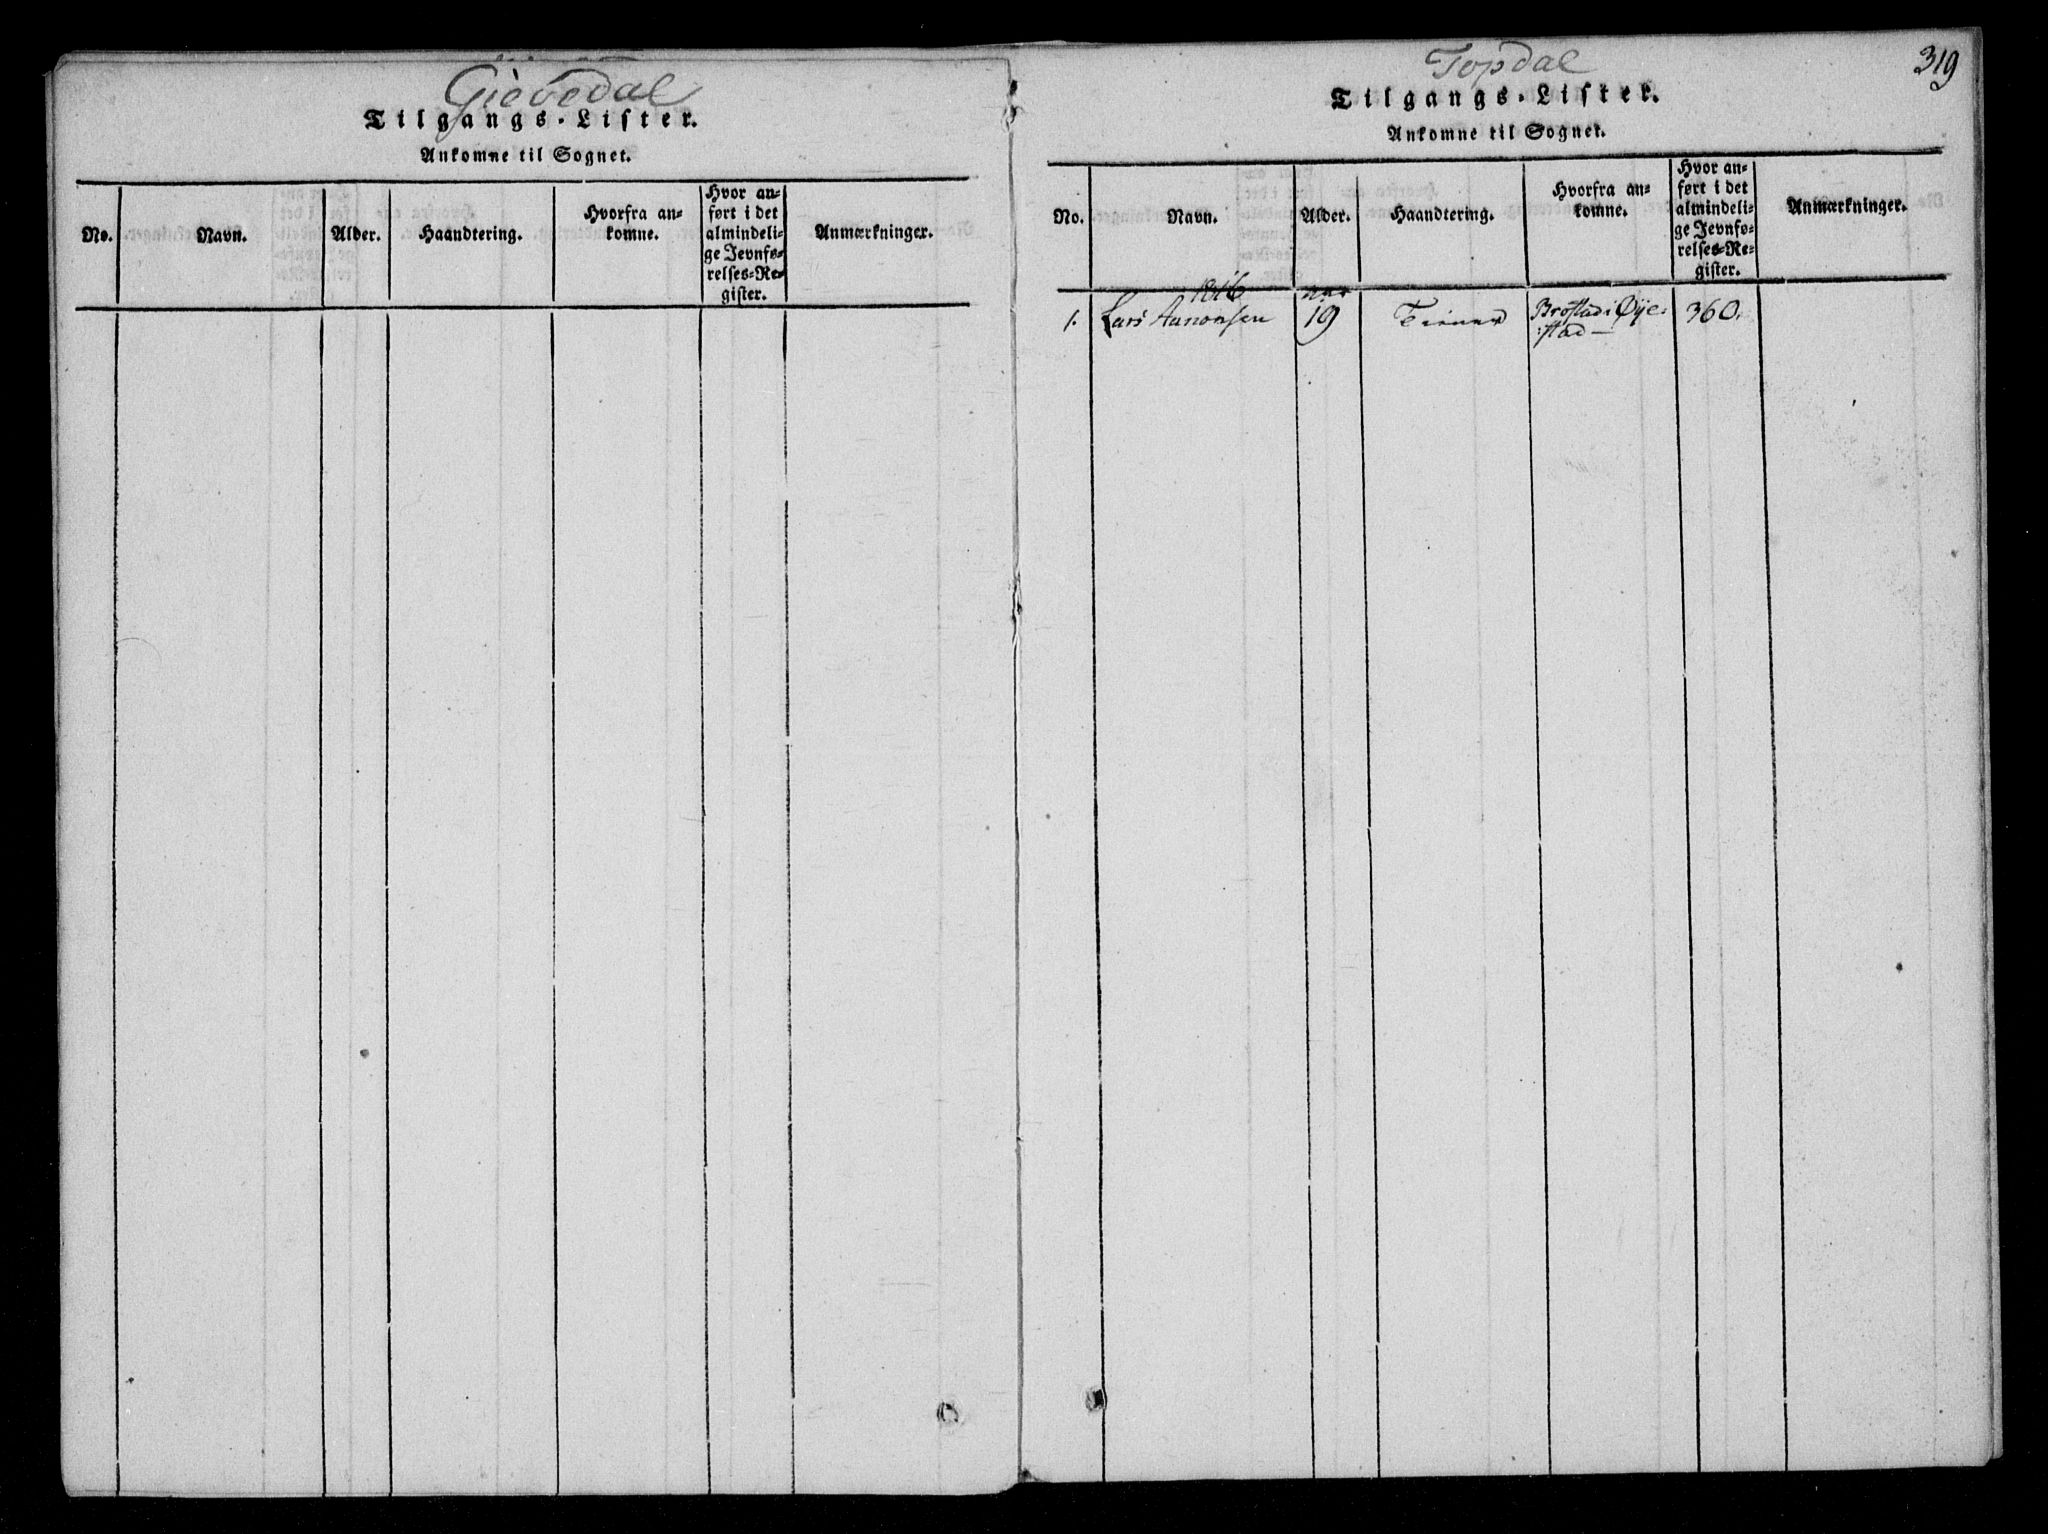 Gievedal
Tilgangs-Lister.
Ankomne til Sognet.
No.
Navn.
Alder.
Haandtering.
Hvorfra an-
komne.
Hvor an-
ført i det
almindeli-
ge Jevnfø-
relses-Re-
gister.
Anmærkninger.
Topdal
319
Tilgangs-Lister.
Ankomne til Sognet.
No.
Navn.
Alder.
Haandtering.
Hvorfra an-
komne.
Hvor an-
ført i det
almindeli-
ge Jevnfø-
relses-Re-
gister.
Anmærkninger.
1816
1. Lars Aanonsen 19 Tiener Brøstad i Øye-
stad — 360.